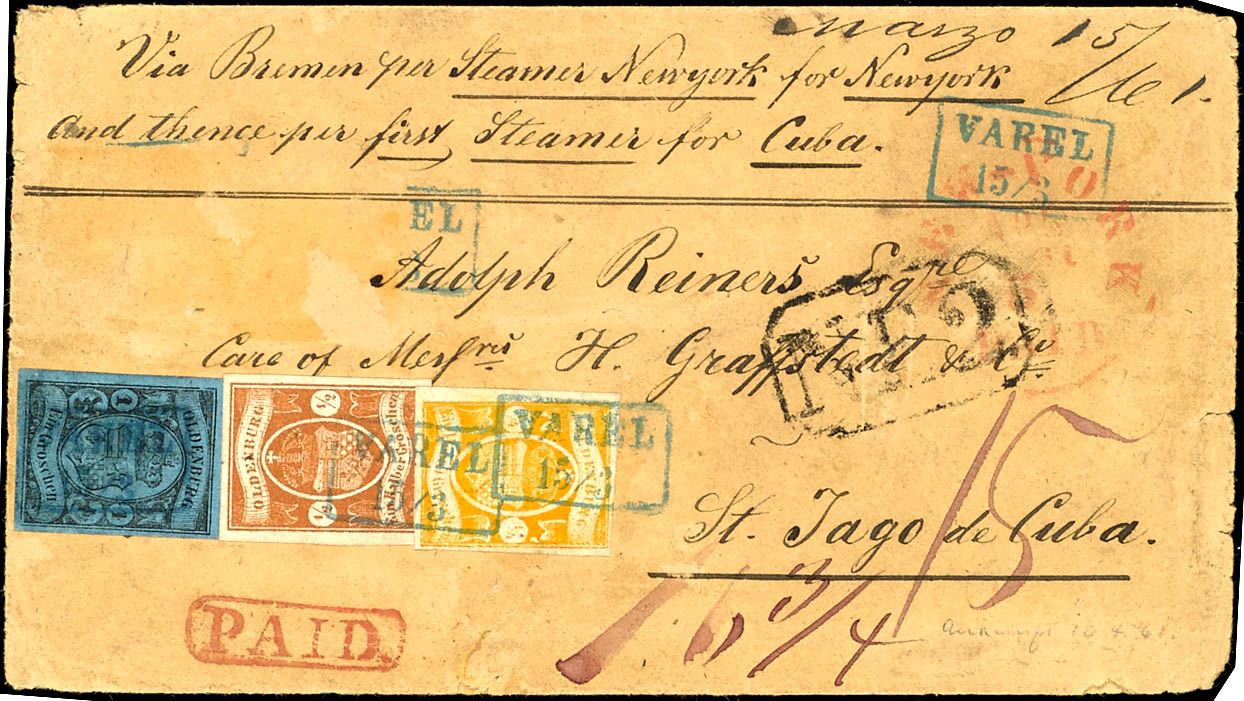 Marzo 15/61.
Via Bremen per Steamer Newyork for Newyork
And thence per first Steamer for Cuba.
VAREL
15/3
EL
YORK
Adolph Reiners Esqre
Care of Messrs H. Graffstedt &
NE2
1 OLDENBURG 1
Ein Groschen
1/2 OLDENBURG 1/2
Ein halber Groschen
VAREL
15/3
VAREL
15/3
St. Jago de Cuba.
15
3/4
PAID.